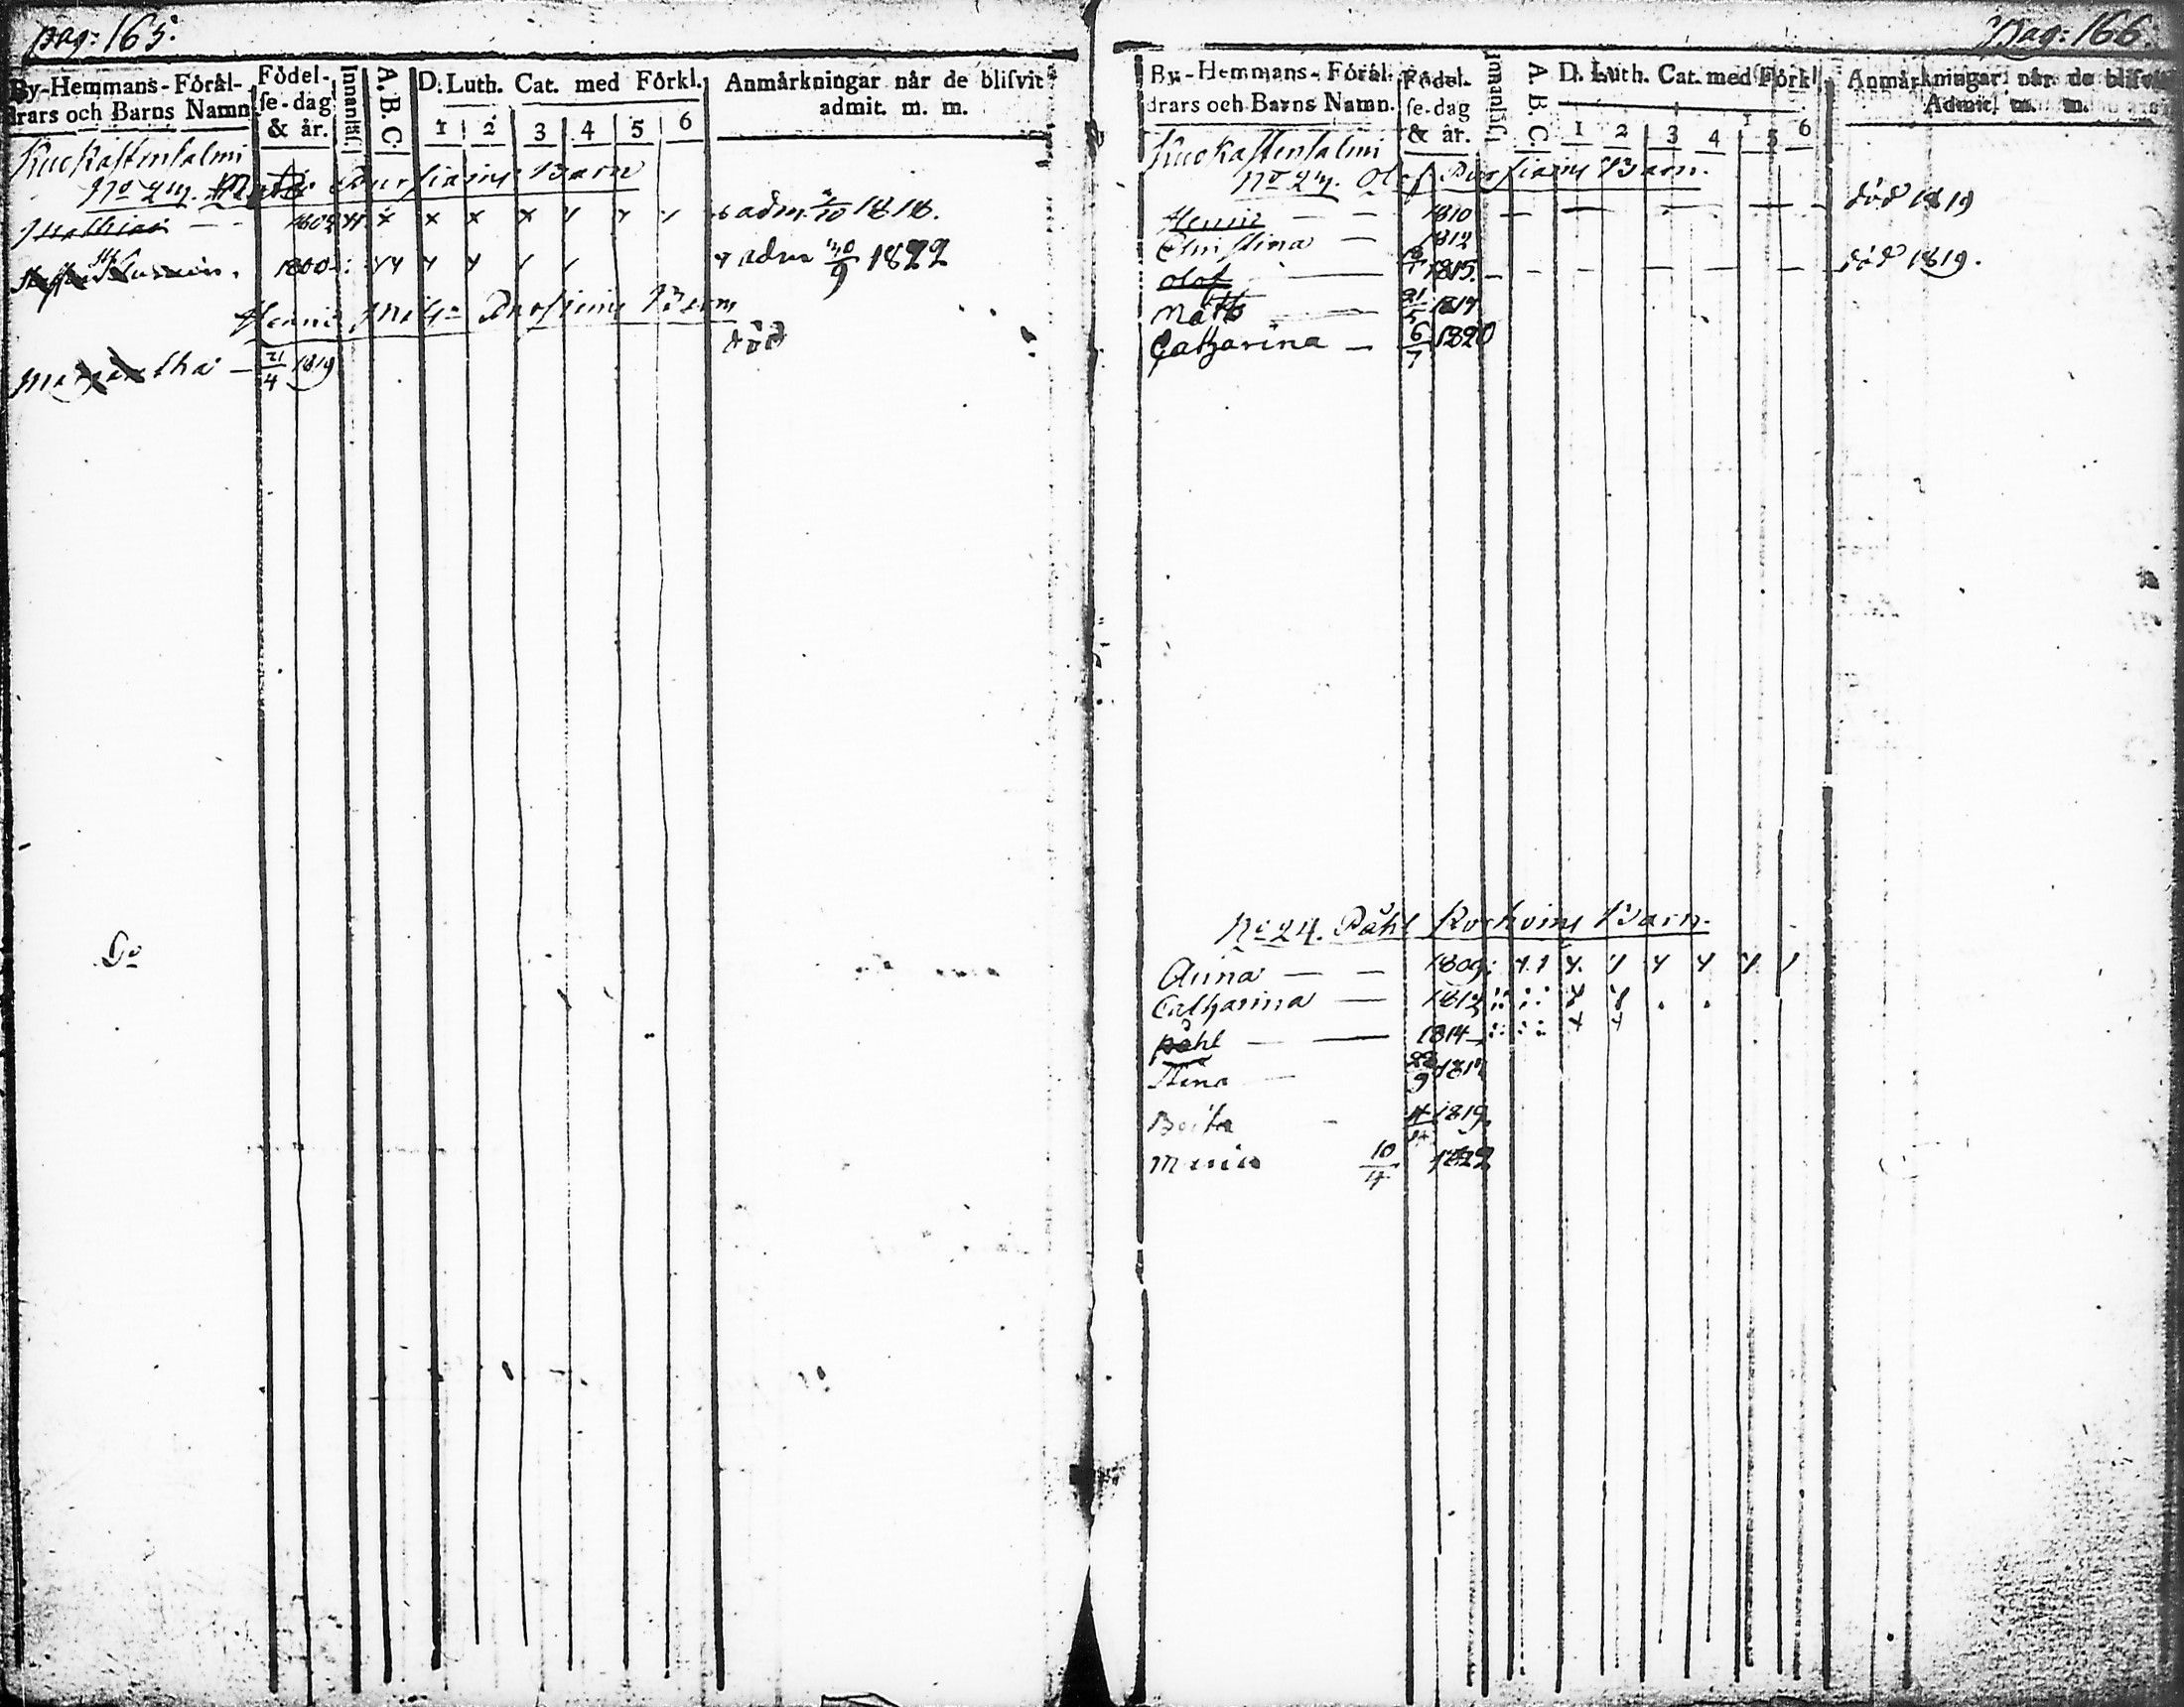 pag: 165.
By-Hemmans-Föräl-
drars och Barns Namn
Födel-
se-dag
& år.
Innanläs.
A. B. C.
D. Luth. Cat. med Förkl.
1 2 3 4 5 6
Anmärkningar när de blifvit
admit. m. m.
Kuokastensalmi
No 24. Pursiains Barn
Mathias — x x x x adm. 1818.
1800 adm 30/9 1822
Henric Pursiains Barn
död
tha — 21/4 1819
Do
Pag: 166.
By-Hemmans-Föräl-
drars och Barns Namn.
Födel-
se-dag
& år.
Innanläs.
A. B. C.
D. Luth. Cat. med Förkl.
1 2 3 4 5 6
Anmärkningar när de blifvit
Admit. m. m.
Kuokastensalmi
No 24. Olof Pursiains Barn.
Henric — — 1810 — — — — — död 1819
Christina — 1812
Olof — 1815. — — — — — — död 1819.
Matts — 21/5 1817
Catharina — 6/7 1820
No 24. Påhl Korhoins Barn.
Anna — — 1809
Catharina — 1812
Påhl — — 1814
Stina — 22/9 1817
Brita - 1819
Maria 10/4 1822